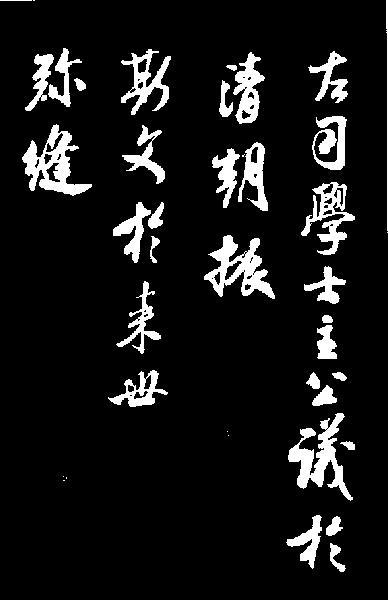 右司學士主公議於
清朝振
斯文於来世
弥縫